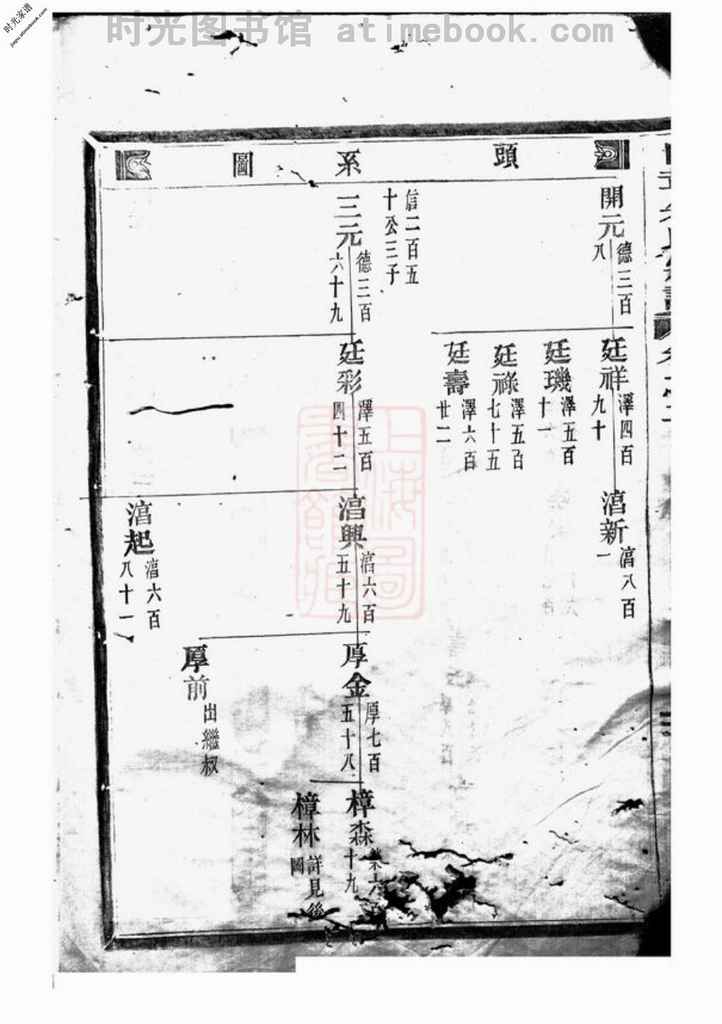 时光图书馆 atimebook.com
时光家谱
jiapu.atimebook.com
頭系圖
開元 德三百八
廷祥 澤四百九十
廷璣 澤五百十一
廷祿 澤五百七十五
廷壽 澤六百廿二
湻新 湻八百一
信二百五十公三子
三元 德三百六十九
廷彩 澤五百四十二
湻興 湻六百五十九
湻起 湻六百八十一
厚金 厚七百五十八
厚前 出繼叔
樟森 六十九
樟林 詳見後圖